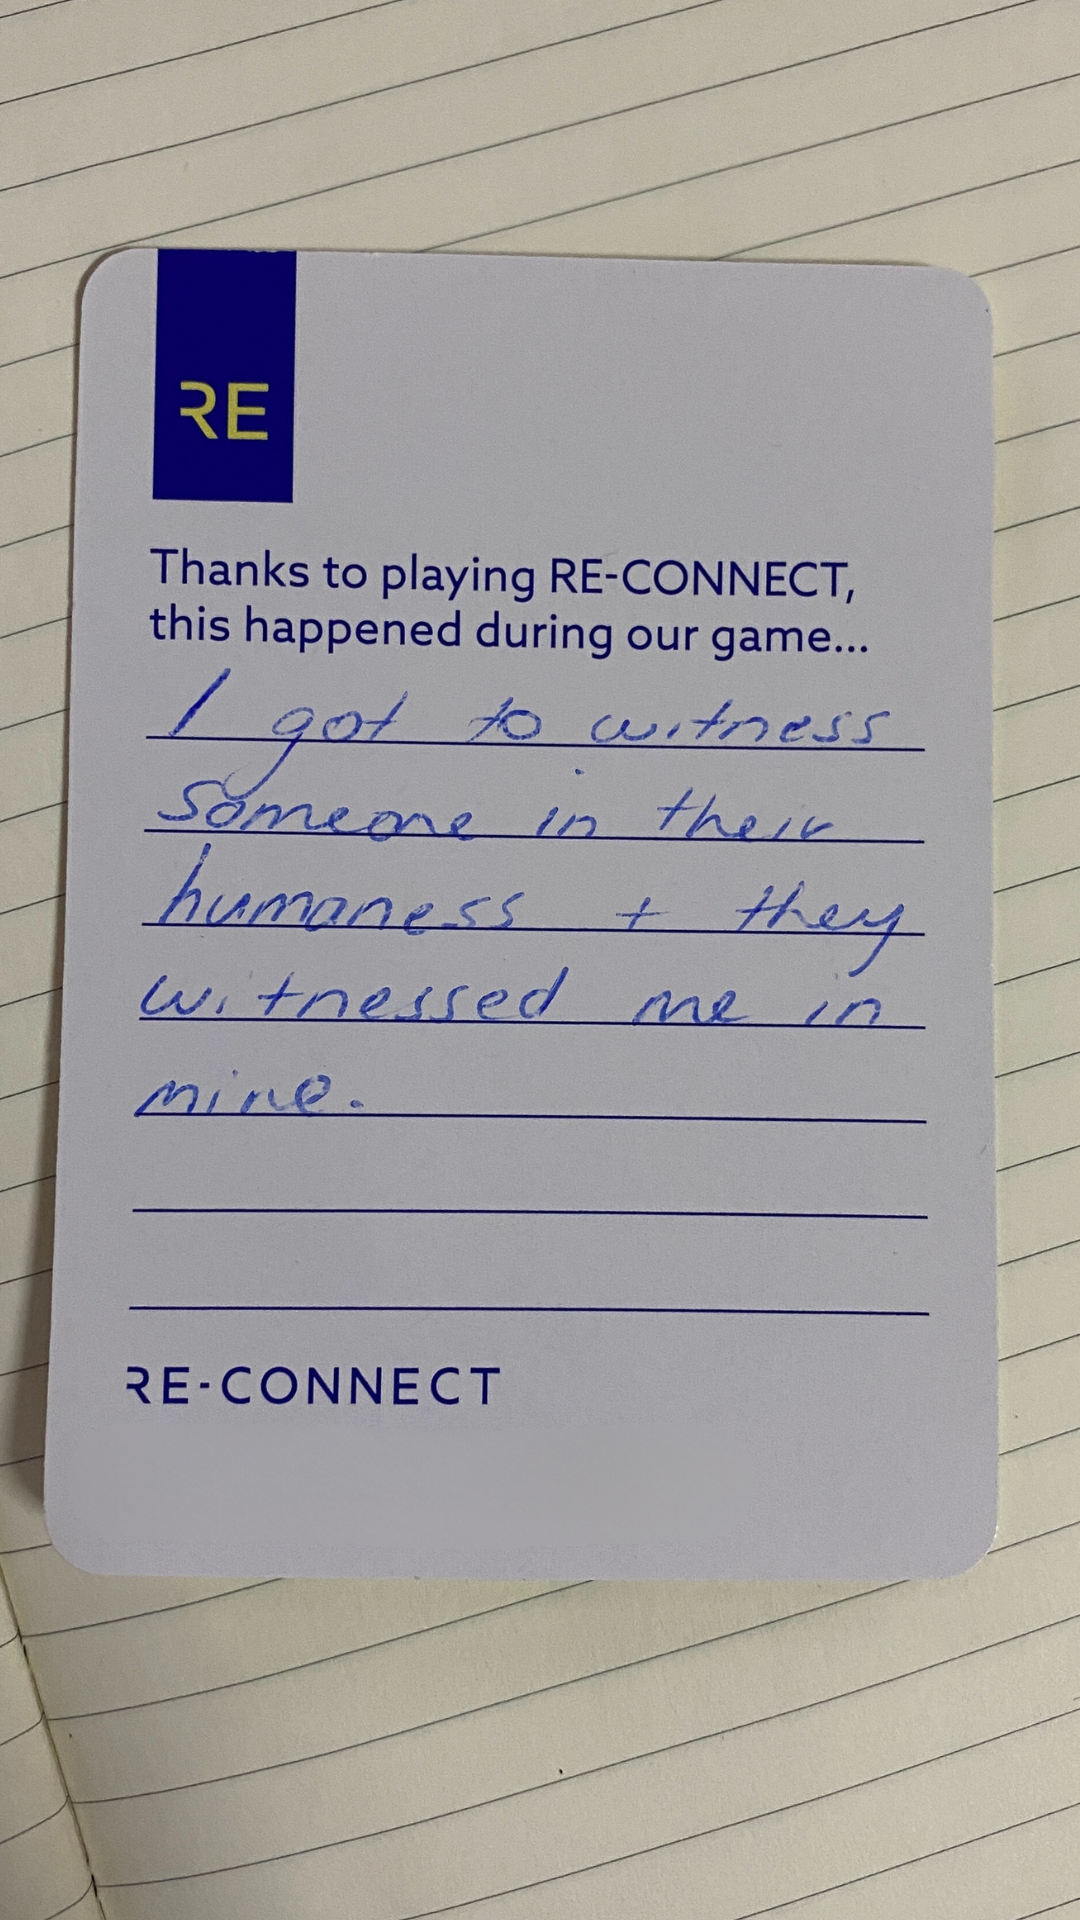 RE
Thanks to playing RE-CONNECT,
this happened during our game...
I got to witness
someone in their
humaness + they
witnessed me in
mine.
RE-CONNECT